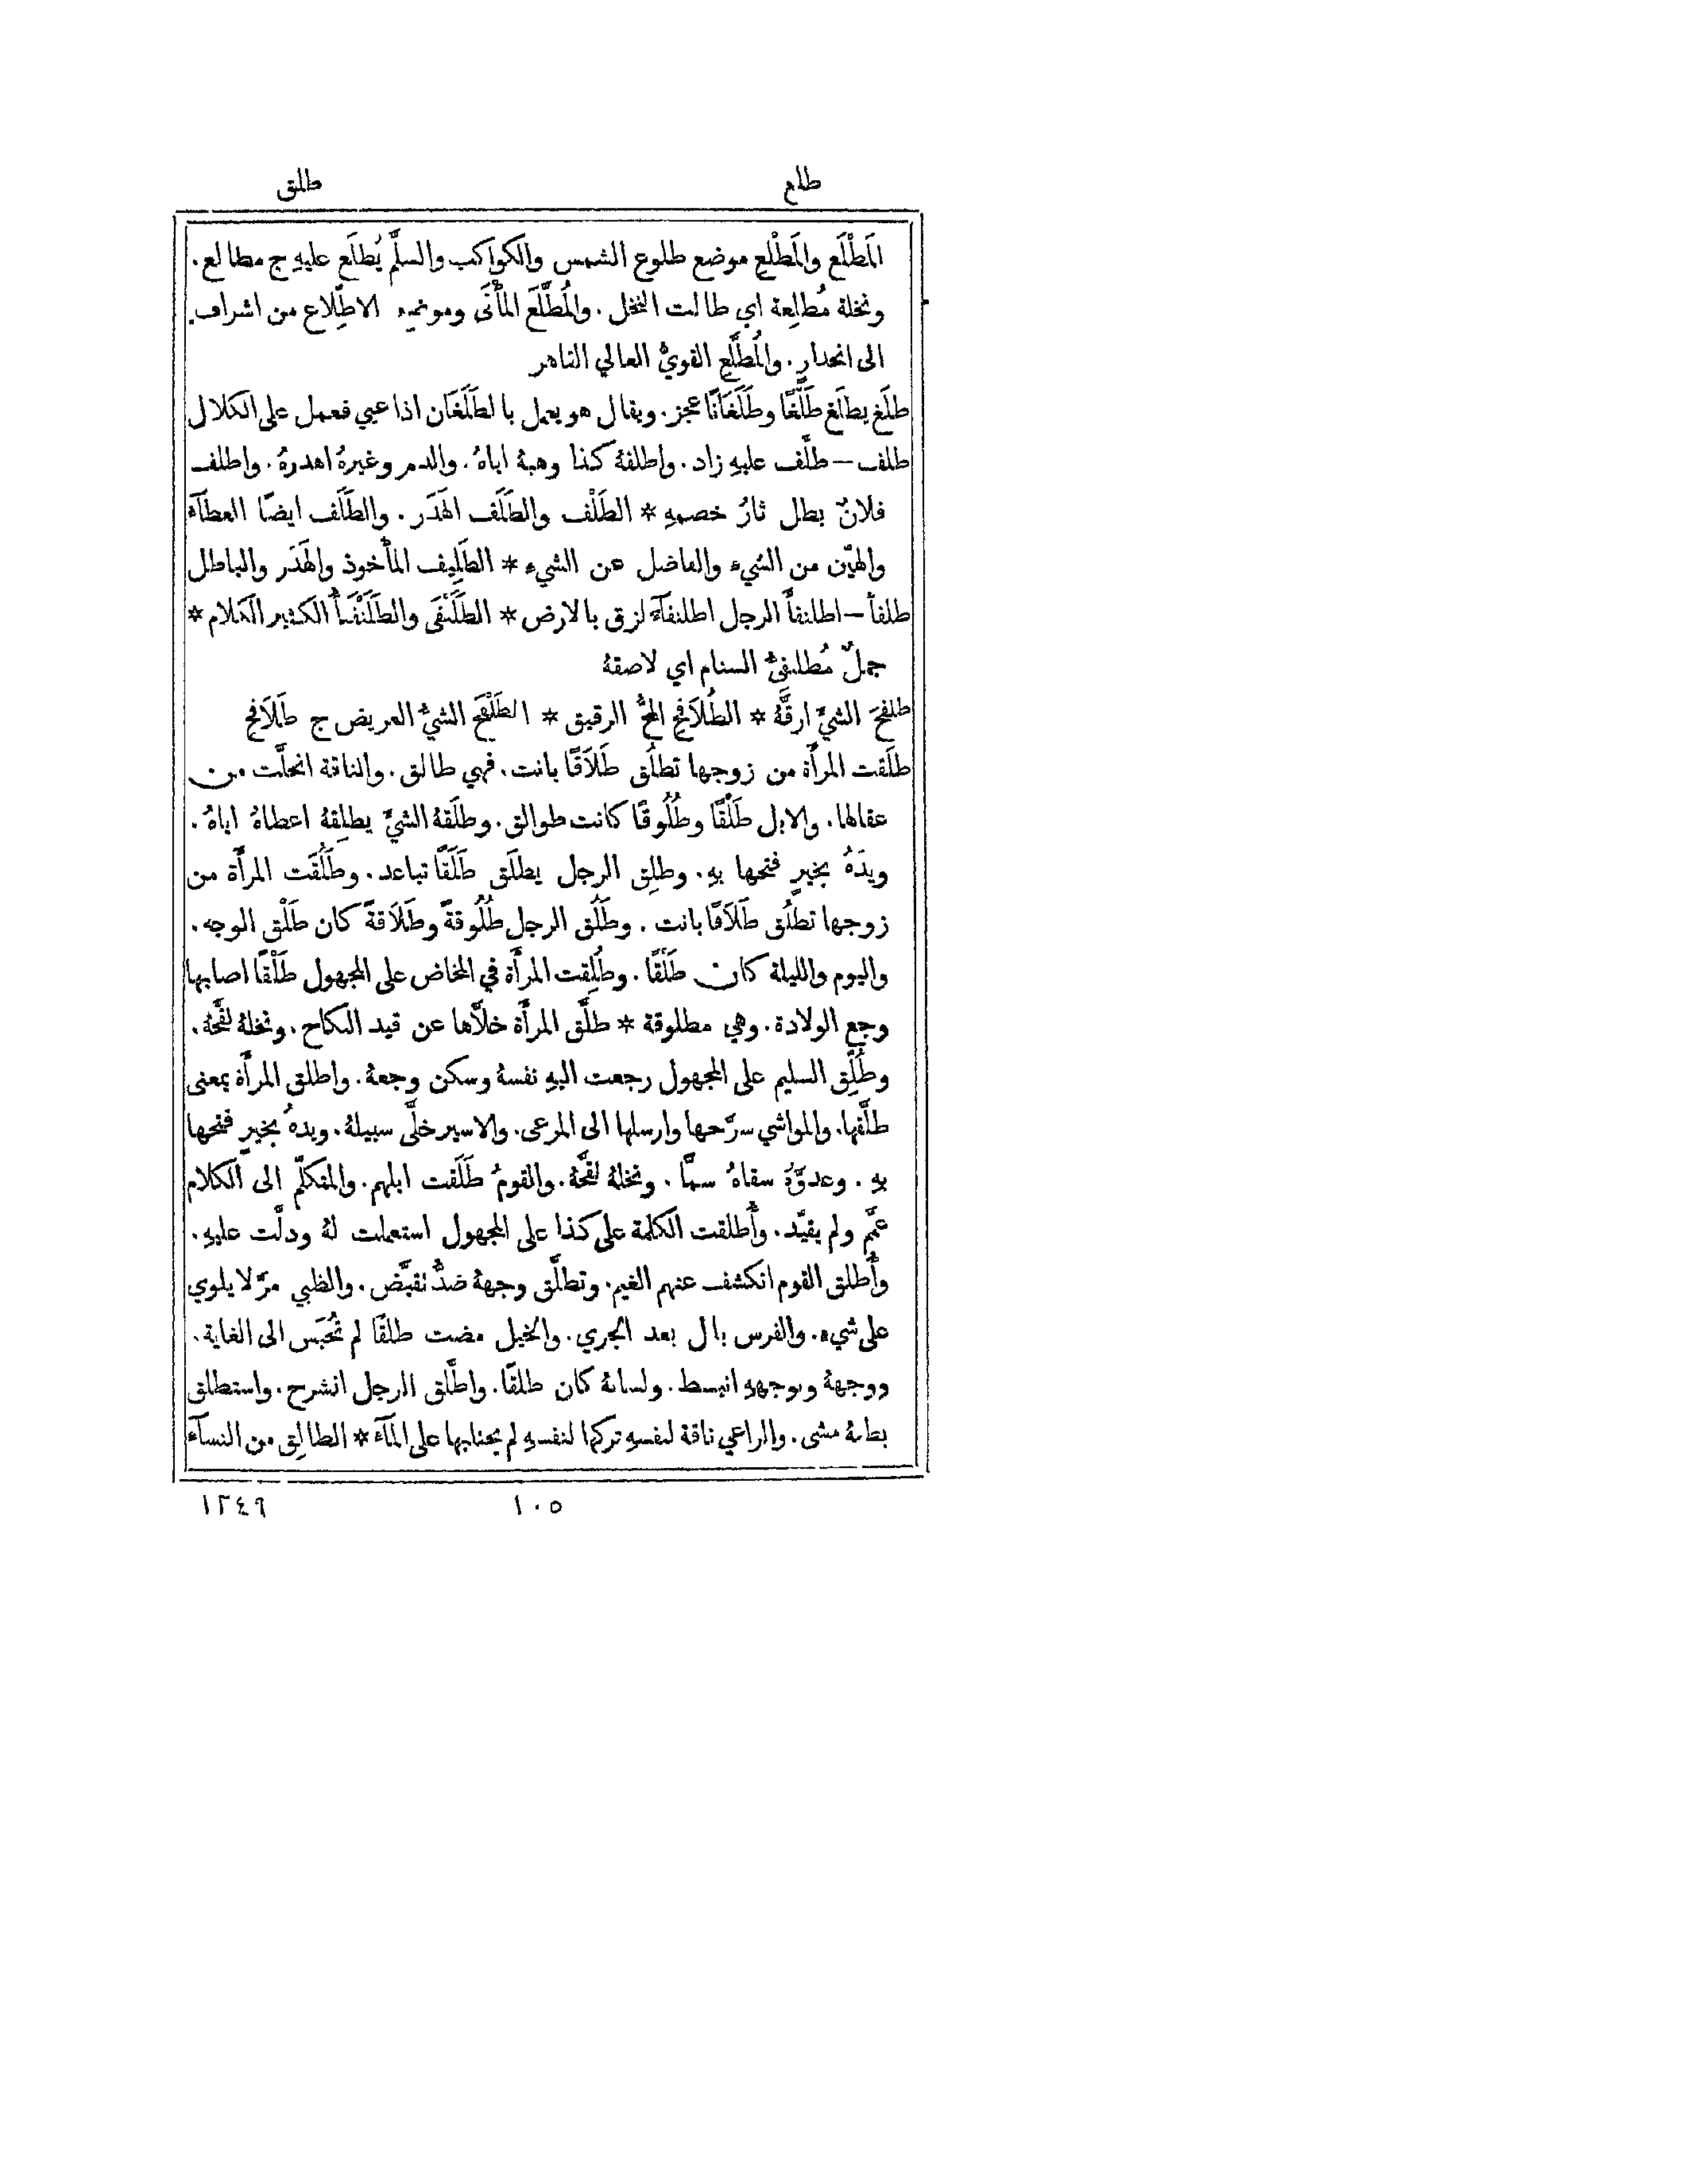 طلع طلق
المَطْلَع والمَطْلِع موضع طلوع الشمس والكواكب والسلَّم يُطلَع عليهِ ج مطالع.
ونخلة مُطالِعة اي طالت النخل. والمُطَّلَع المأْتَى وموضع الاطّلاع من اشراف
الى انحدارٍ. والمُطَّلِع القويُّ العالي القاهر
طلَغ يطلَغ طَلْغًا وطَلَغَانًا عجز. ويقال هو يعمل بالطَلَغَان اذا عيي فعمل على الكلال
طلف — طلَّف عليهِ زاد. واطلفهُ كذا وهبهُ اياهُ. والدم وغيرهُ اهدرهُ. واطلف
فلانٌ بطل ثارُ خصمهِ * الطَلْف والطَلَف الهَدَر. والطَلَف ايضًا العطآءُ
والهيّن من الشيءِ والفاضل عن الشيءِ * الطَلِيف المأْخوذ والهَدَر والباطل
طلفأ — اطلنفأَ الرجل اطلنفآءً لزق بالارض * الطَلَنْفَى والطَلَنْفَأُ الكثير الكلام *
جملٌ مُطلنفئُ السنام اي لاصقهُ
طلفحَ الشيَّ ارقَّهُ * الطُلَافِح المخُّ الرقيق * الطَلْفَح الشيُّ العريض ج طَلَافِح
طلَقت المرأَة من زوجها تطلُق طَلَاقًا بانت. فهي طالق. والناقة انحلَّت من
عقالها. والابل طَلْقًا وطُلُوقًا كانت طوالق. وطلَقهُ الشيَّ يطلِقهُ اعطاهُ اياهُ.
ويدَهُ بخيرٍ فتحها بهِ. وطلِق الرجل يطلَق طَلَقًا تباعد. وطَلُقَت المرأَة من
زوجها تطلُق طَلَاقًا بانت. وطَلُق الرجل طُلُوقةً وطَلَاقةً كان طَلْق الوجه.
واليوم والليلة كان طَلْقًا. وطُلِقت المرأَة في المخاض على المجهول طَلْقًا اصابها
وجع الولادة. وهي مطلوقة * طلَّق المرأَة خلَّاها عن قيد النكاح. ونخلهُ لقَّحهُ.
وطُلِّق السليم على المجهول رجعت اليهِ نفسهُ وسكن وجعهُ. واطلق المرأَة بمعنى
طلَّقها. والمواشي سرَّحها وارسلها الى المرعى. والاسير خلَّى سبيلهُ. ويدهُ بخيرٍ فتحها
بهِ. وعدوَّهُ سقاهُ سمًّا. ونخلهُ لقَّحهُ. والقومُ طَلَقت ابلهم. والمتكلّم الى الكلام
عمَّم ولم يقيّد. وأُطلقت الكلمة على كذا على المجهول استعملت لهُ ودلَّت عليهِ.
وأُطلق القوم انكشف عنهم الغيم. وتطلَّق وجههُ ضدُّ تقبَّض. والظبي مرَّ لا يلوي
على شيءٍ. والفرس بال بعد الجري. والخيل مضت طلقًا لم تُحبَس الى الغاية.
ووجههُ وبوجههِ انبسط. ولسانهُ كان طلقًا. واطَّلق الرجل انشرح. واستطلق
بطنهُ مشى. والراعي ناقة لنفسهِ تركها لنفسهِ لم يحتلبها على المآءِ * الطالِق من النسآءِ
١٠٥ ١٢٤٩